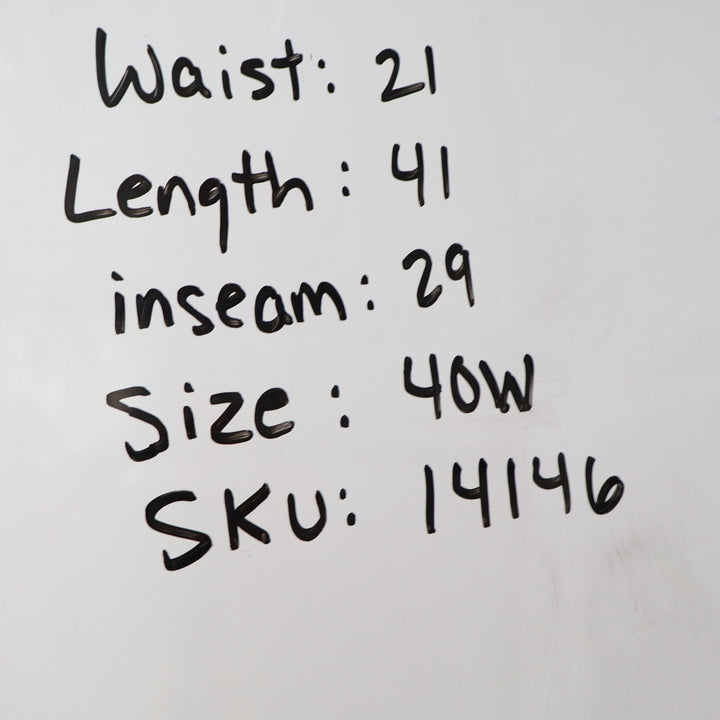 Waist: 21
Length: 41
inseam: 29
Size: 40W
SKU: 14146